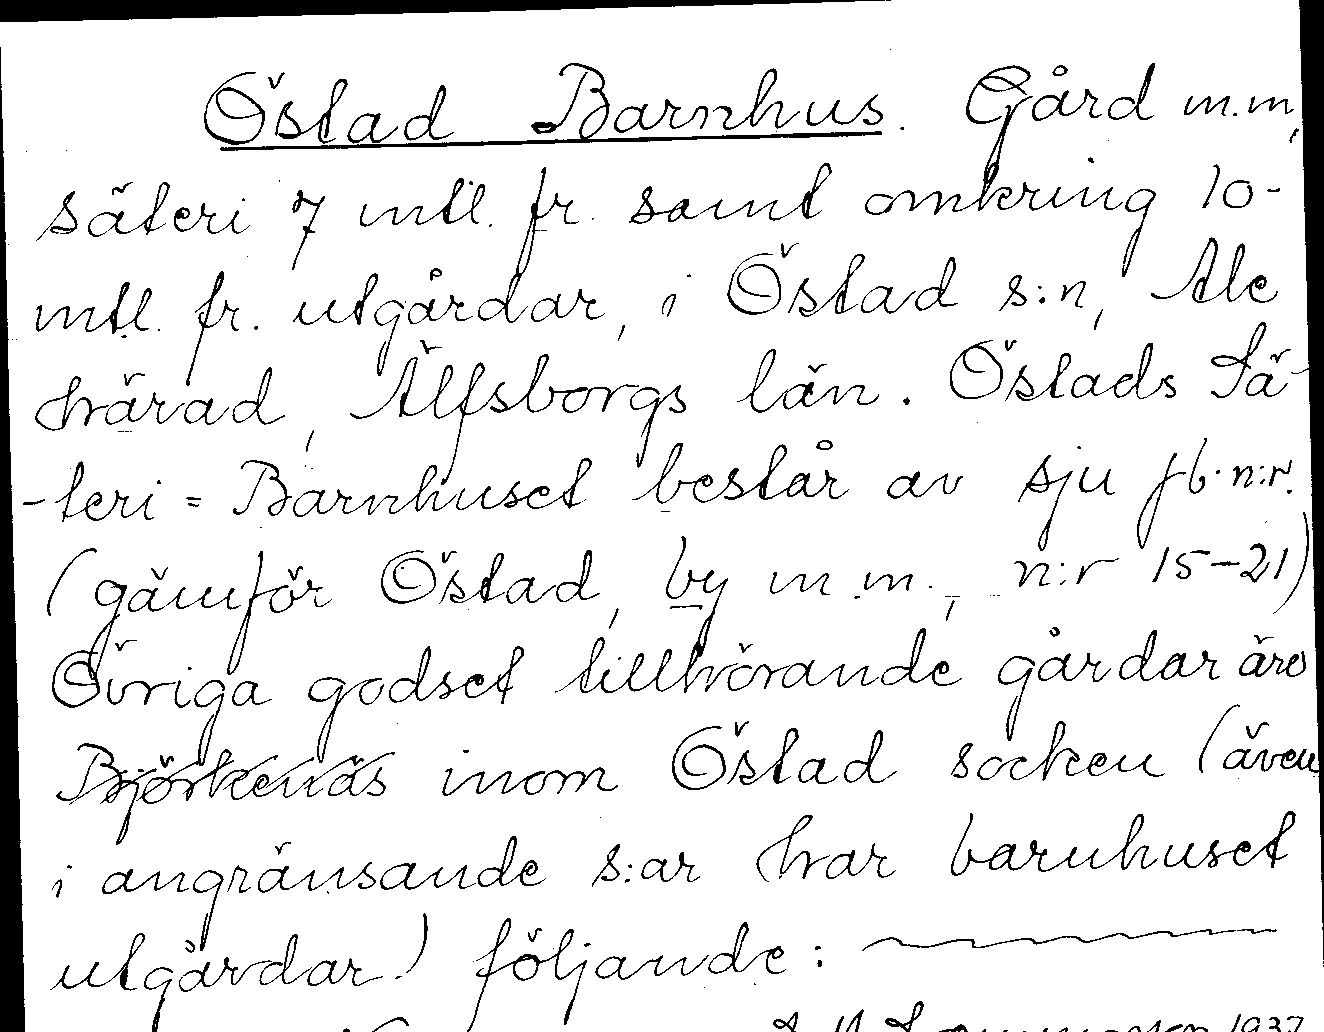 Östad Barnhus. Gård m.m,
säteri 7 mtl. fr. samt omkring 10-
mtl. fr. utgårdar, i Östad s:n, Ale
härad, Älfsborgs län. Östads Sä-
-teri = Barnhuset består av sju jb. n:r.
(gämför Östad, by m.m., n:r 15-21)
Övriga godset tillhörande gårdar äro
Björkenäs inom Östad socken (även
i angränsande s:ar har barnhuset
utgårdar) följande:
1937